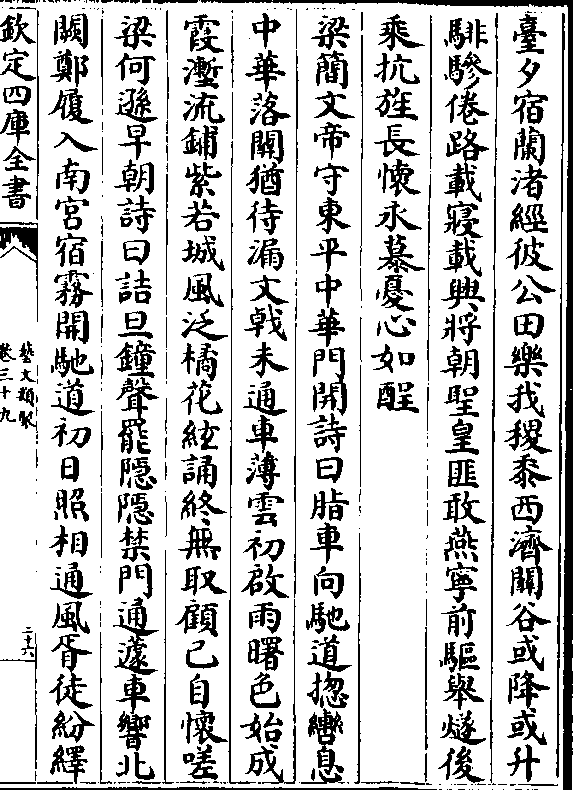 臺夕宿蘭渚經彼公田樂我稷黍西濟關谷或降或升
騑驂倦路載寢載興將朝聖皇匪敢燕寧前驅舉燧後
乘抗旌長懷永慕憂心如酲
梁簡文帝守東平中華門開詩曰脂車向馳道揔轡息
中華落關猶待漏文戟未通車薄雲初啟雨曙色始成
霞塹流鋪紫若城風泛橘花絃誦終無取顧己自懷嗟
梁何遜早朝詩曰詰旦鐘聲罷隱隱禁門通蘧車響北
闕鄭履入南宮宿霧開馳道初日照相通風胥徒紛繹
欽定四庫全書
藝文類聚
卷三十九
二十六